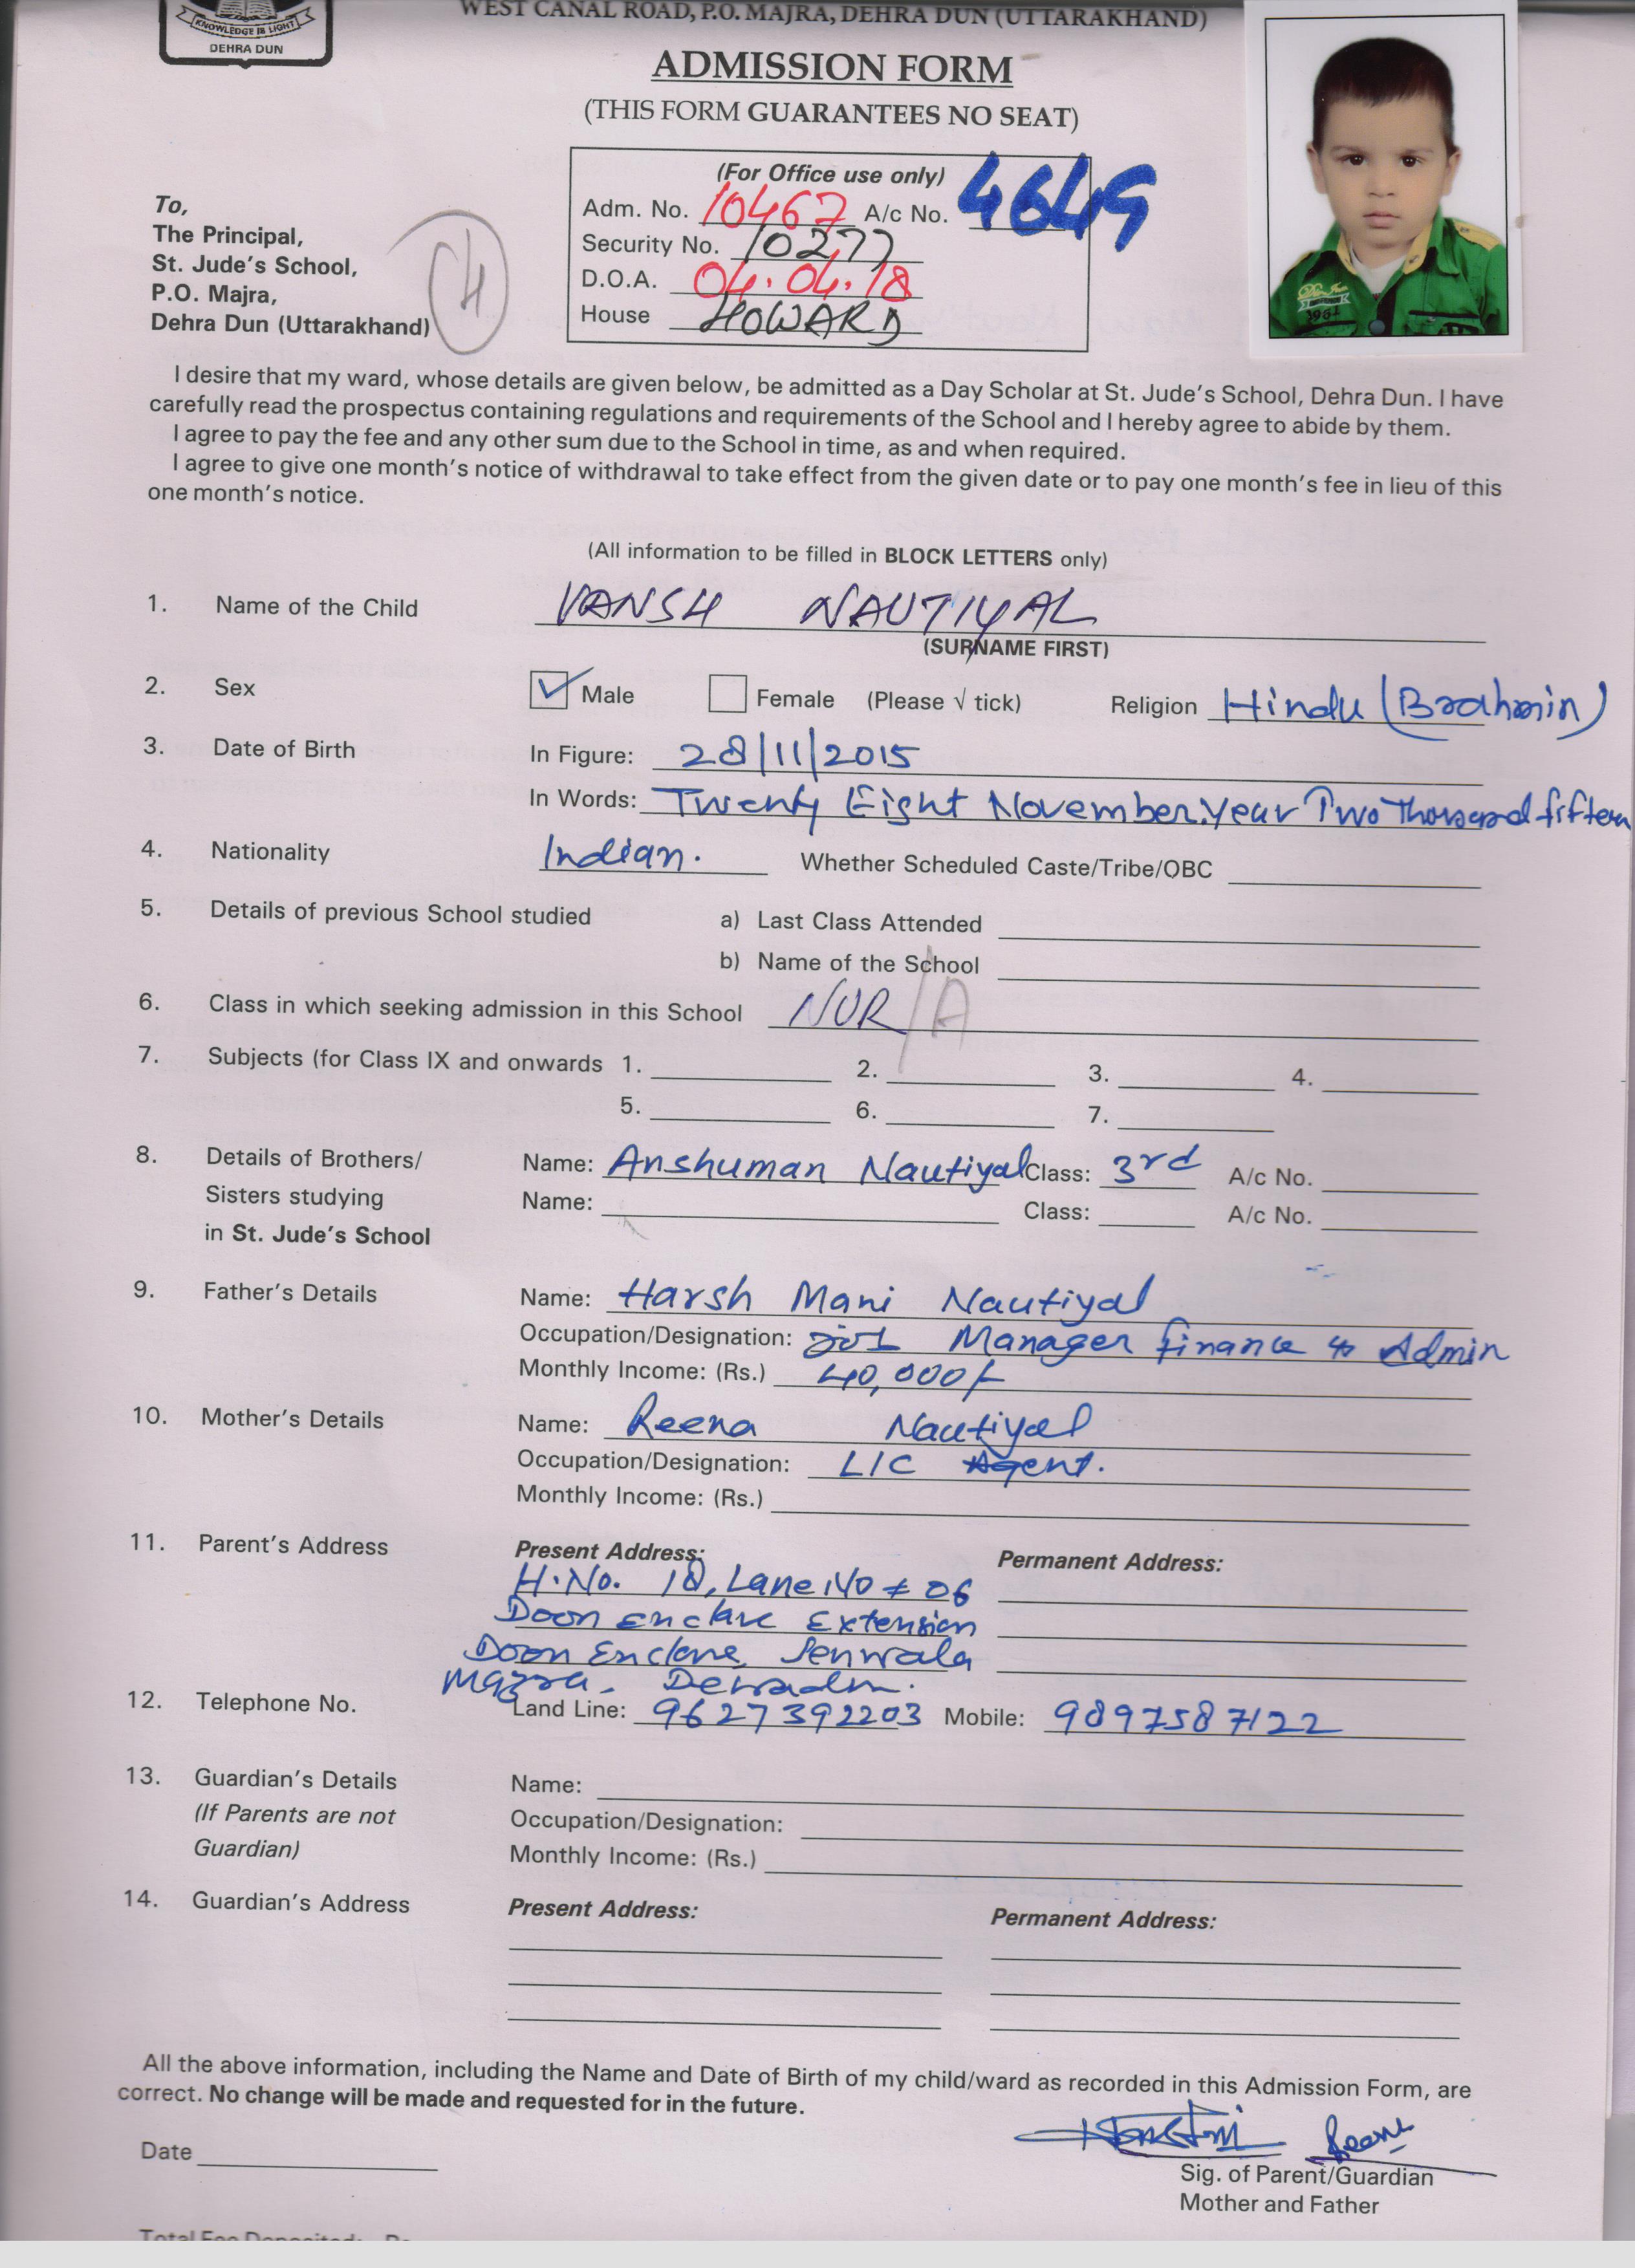 KNOWLEDGE IS LIGHT
DEHRA DUN
WEST CANAL ROAD, P.O. MAJRA, DEHRA DUN (UTTARAKHAND)
ADMISSION FORM
(THIS FORM GUARANTEES NO SEAT)
(For Office use only)
Adm. No. 10467 A/c No. 4649
Security No. 10277
D.O.A. 04.04.18
House HOWARD
To,
The Principal,
St. Jude's School,
P.O. Majra,
Dehra Dun (Uttarakhand)
4
I desire that my ward, whose details are given below, be admitted as a Day Scholar at St. Jude's School, Dehra Dun. I have
carefully read the prospectus containing regulations and requirements of the School and I hereby agree to abide by them.
I agree to pay the fee and any other sum due to the School in time, as and when required.
I agree to give one month's notice of withdrawal to take effect from the given date or to pay one month's fee in lieu of this
one month's notice.
(All information to be filled in BLOCK LETTERS only)
1. Name of the Child VANSH NAUTIYAL
(SURNAME FIRST)
2. Sex ✓ Male Female (Please √ tick) Religion Hindu (Brahmin)
3. Date of Birth In Figure: 28/11/2015
In Words: Twenty Eight November year Two Thousand fifteen
4. Nationality Indian. Whether Scheduled Caste/Tribe/OBC
5. Details of previous School studied a) Last Class Attended
b) Name of the School
6. Class in which seeking admission in this School NUR/A
7. Subjects (for Class IX and onwards 1. 2. 3. 4.
5. 6. 7.
8. Details of Brothers/ Name: Anshuman Nautiyal Class: 3rd A/c No.
Sisters studying Name: Class: A/c No.
in St. Jude's School
9. Father's Details Name: Harsh Mani Nautiyal
Occupation/Designation: Manager finance & Admin
Monthly Income: (Rs.) 40,000/-
10. Mother's Details Name: Reena Nautiyal
Occupation/Designation: LIC Agent.
Monthly Income: (Rs.)
11. Parent's Address Present Address: Permanent Address:
H.No. 18, Lane No # 06
Doon Enclave Extension
Doon Enclave,
12. Telephone No. Land Line: 9627392203 Mobile: 9897587122
13. Guardian's Details Name:
(If Parents are not Occupation/Designation:
Guardian) Monthly Income: (Rs.)
14. Guardian's Address Present Address: Permanent Address:
All the above information, including the Name and Date of Birth of my child/ward as recorded in this Admission Form, are
correct. No change will be made and requested for in the future.
Date
Sig. of Parent/Guardian
Mother and Father